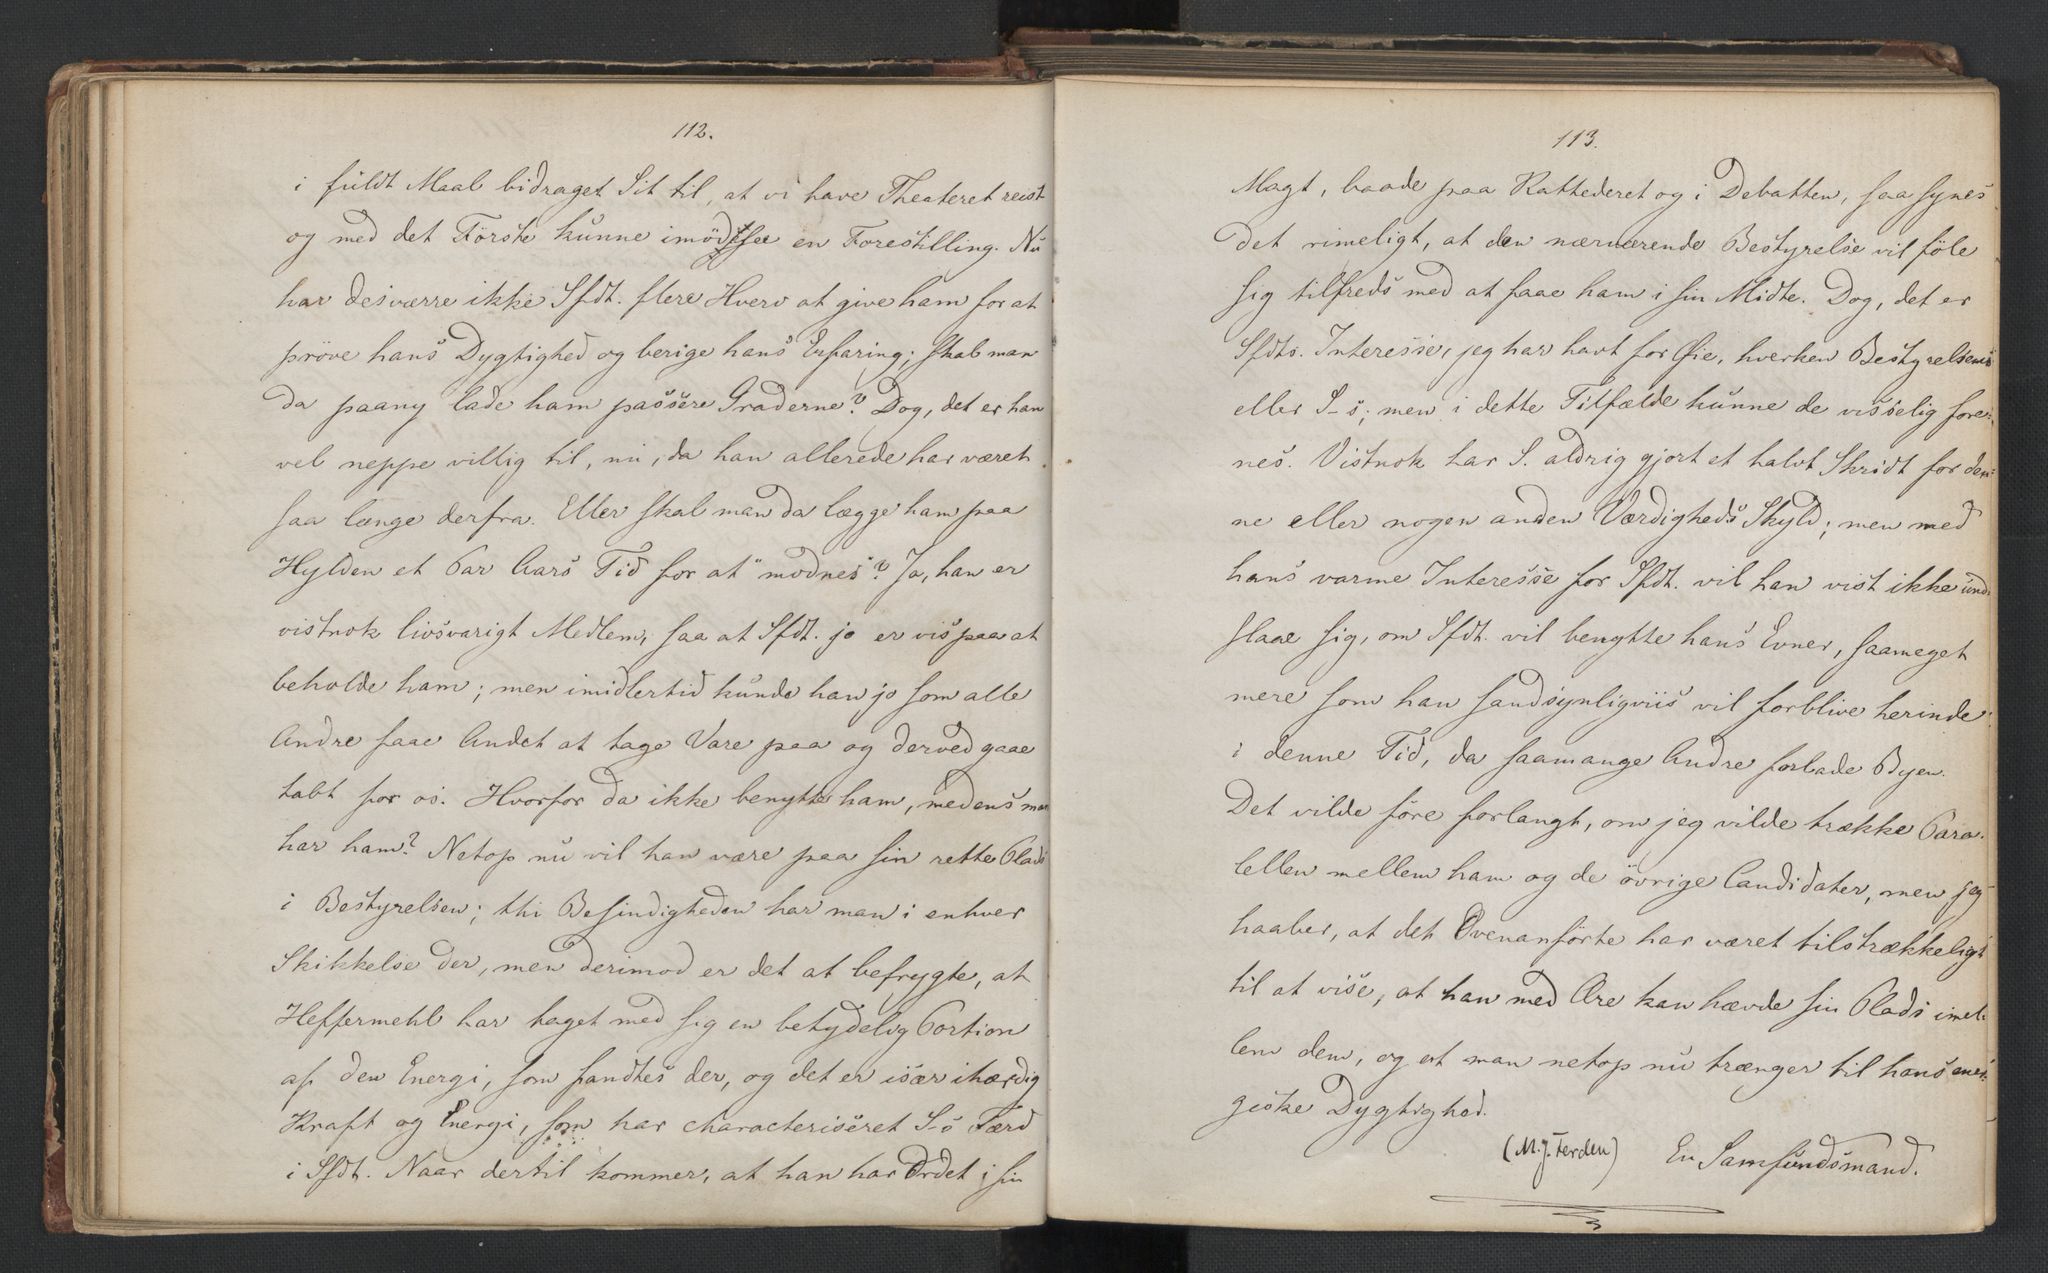 112.
i fuldt Maal bidraget Sit til, at vi have Theateret reist
og med det Förste kunne imödesee en Forestilling. Nu
har desværre ikke Sfdt. flere Hverv at give ham for at
pröve hans Dygtighed og berige hans Erfaring; skal man
da paany lade ham passere Graderne? Dog, det er han
vel neppe villig til, nu, da han allerede har været
saa længe derfra. Eller skal man da lægge ham paa
Hylden et Par Aars Tid for at "modnes"? Ja, han er
vistnok livsvarigt Medlem, saa at Sfdt. jo er vis paa at
beholde ham; men imidlertid kunde han jo som alle
Andre faae Andet at tage Vare paa og derved gaae
tabt for os. Hvorfor da ikke benytte ham, medens man
har ham? Netop nu vil han være paa sin rette Plads
i Bestyrelsen; thi Besindigheden har man i enhver
Skikkelse der, men derimod er det at befrygte, at
Heffermehl har taget med sig en betydelig Portion
af den Energi, som fandtes der, og det er især ihærdig
Kraft og Energi, som har characteriseret S-s Færd
i Sfdt. Naar dertil kommer, at han har Ordet i sin
113.
Magt, baade paa Kathederet og i Debatten, saa synes
det rimeligt, at den nærværende Bestyrelse vil föle
sig tilfreds med at faae ham i sin Midte. Dog, det er
Sfdts. Interesse, jeg har havt for Öie, hverken Bestyrelsens
eller S-s; men i dette Tilfælde kunne de visselig fore-
nes. Vistnok har S. aldrig gjort et halvt Skridt for den-
ne eller nogen anden Værdigheds Skyld; men med
hans varme Interesse for Sfdt. vil han vist ikke und-
slaae sig, om Sfdt. vil benytte hans Evner, saameget
mere som han sandsynligviis vil forblive herinde
i denne Tid, da saamange Andre forlade Byen.
Det vilde före forlangt, om jeg vilde trække Para-
lellen mellem ham og de övrige Candidater, men jeg
haaber, at det Ovenanförte har været tilstrækkeligt
til at vise, at han med Ære kan hævde sin Plads imel-
lem dem, og at man netop nu trænger til hans ener-
giske Dygtighed.
(M. J. Færden) En Samfundsmand.